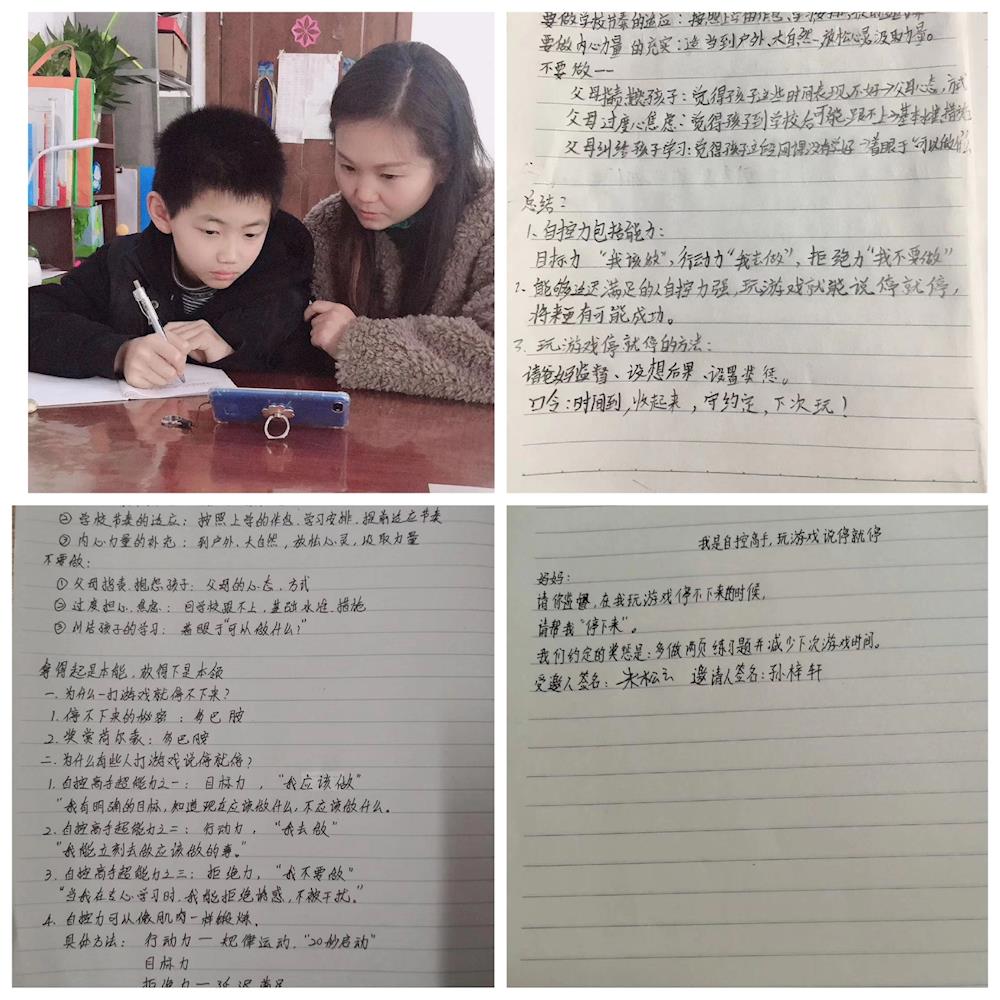 要做学校节奏的适应：按照上学的作息、学习
要做内心力量的充实：适当到户外、大自然，放松心灵汲取力量。
不要做——
父母指责、抱怨孩子：觉得孩子这些时间表现不好→父母心态，方式
父母过度心焦虑：觉得孩子到学校后可能跟不上→基本水准措施
父母纠结孩子学习：觉得孩子这段间课没有学好→着眼于"可以做什么
总结：
1、自控力包括能力：
目标力 "我该做"，行动力"我去做"，拒绝力"我不要做"
2、能够延迟满足的人自控力强，玩游戏就能说停就停，
将来更有可能成功。
3、玩游戏停就停的方法：
请爸妈监督、设想后果、设置奖惩。
口令：时间到，收起来，守约定，下次玩！
②学校节奏的适应：按照上学的作息、学习安排，提前适应节奏
③内心力量的补充：到户外、大自然，放松心灵，汲取力量
不要做：
①父母指责、抱怨孩子：父母的心态、方式
②过度担心、焦虑：回学校跟不上，基础水准、措施
③纠结孩子的学习：着眼于"可以做什么？"
拿得起是本能，放得下是本领
一、为什么一打游戏就停不下来？
1.停不下来的秘密：多巴胺
2.奖赏荷尔蒙：多巴胺
二、为什么有些人打游戏说停就停？
1.自控高手超能力之一：目标力，"我应该做"
"我有明确的目标，知道现在应该做什么，不应该做什么。
2.自控高手超能力之二：行动力，"我去做"
"我能立刻去做应该做的事。"
3.自控高手超能力之三：拒绝力，"我不要做"
"当我在专心学习时，我能拒绝诱惑，不被干扰。"
4.自控力可以像肌肉一样锻炼。
具体方法：行动力一规律运动，"20秒启动"
目标力
拒绝力一延迟满足
我是自控高手，玩游戏说停就停
妈妈：
请你监督，在我玩游戏停不下来的时候，
请帮我"停下来"。
我们约定的奖惩是：多做两页练习题并减少下次游戏时间。
受邀人签名：朱松云 邀请人签名：孙梓轩